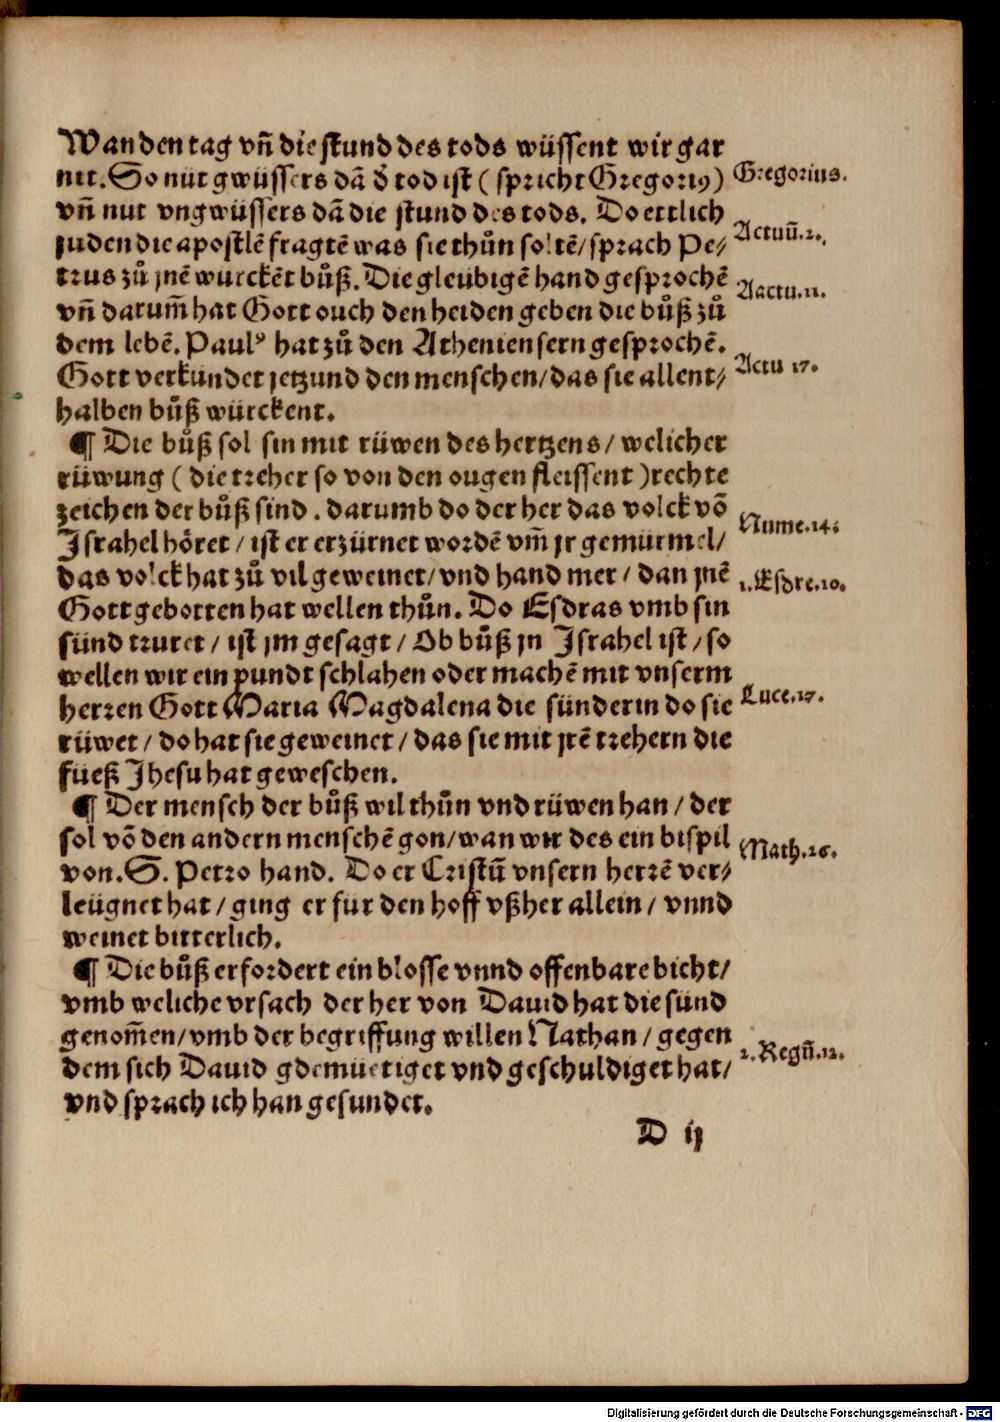 Wan den tag vñ die stund des tods wüssent wir gar
nit. So nüt gwüssers dã d̕ tod ist ( spricht Gregoriꝰ) Gregorius.
vñ nut vngwüssers dã die stund des tods. Do ettlich
juden die apostlẽ fragtẽ was sie thůn soltẽ/ sprach Pe/ Actuũ.2.
trus zů jnẽ wurckẽt bůß. Die gleubigẽ hand gesprochẽ
vñ darum̃ hat Gott ouch den heiden geben die bůß zů Aactu.11.
dem lebẽ. Paulꝰ hat zů den Atheniensern gesprochẽ.
Gott verkundet jetzund den menschen/ das sie allent/ Actu 17.
halben bůß würckent.
¶ Die bůß sol sin mit rüwen des hertzens / welicher
rüwung ( die treher so von den ougen fleissent ) rechte
zeichen der bůß sind . darumb do der her das volck võ Nume.14.
Israhel hôret / ist er erzürnet wordẽ vm̃ jr gemürmel/
das volck hat zů vil geweinet/ vnd hand mer / dan jnẽ 1.Esdre.10.
Gott gebotten hat wellen thůn. Do Esdras vmb sin
sünd truret / ist jm gesagt / Ob bůß jn Israhel ist / so
wellen wir ein pundt schlahen oder machẽ mit vnserm
herren Gott Maria Magdalena die sünderin do sie Luce.17.
rüwet / do hat sie geweinet / das sie mit jrẽ trehern die
füeß Jhesu hat geweschen.
¶ Der mensch der bůß wil thůn vnd rüwen han / der
sol võ den andern menschẽ gon/ wan wir des ein bispil Math.26.
von. S. Petro hand. Do er Cristũ vnsern herrẽ ver/
leügnet hat / ging er fur den hoff vßher allein / vnnd
weinet bitterlich.
¶ Die bůß erfordert ein blosse vnnd offenbare bicht/
vmb weliche vrsach der her von Dauid hat die sünd
genom̃en/ vmb der begriffung willen Nathan / gegen
dem sich Dauid gdemuetiget vnd geschuldiget hat/ 2.Regũ.12.
vnd sprach ich han gesundet.
D ij
Digitalisierung gefördert durch die Deutsche Forschungsgemeinschaft - DFG